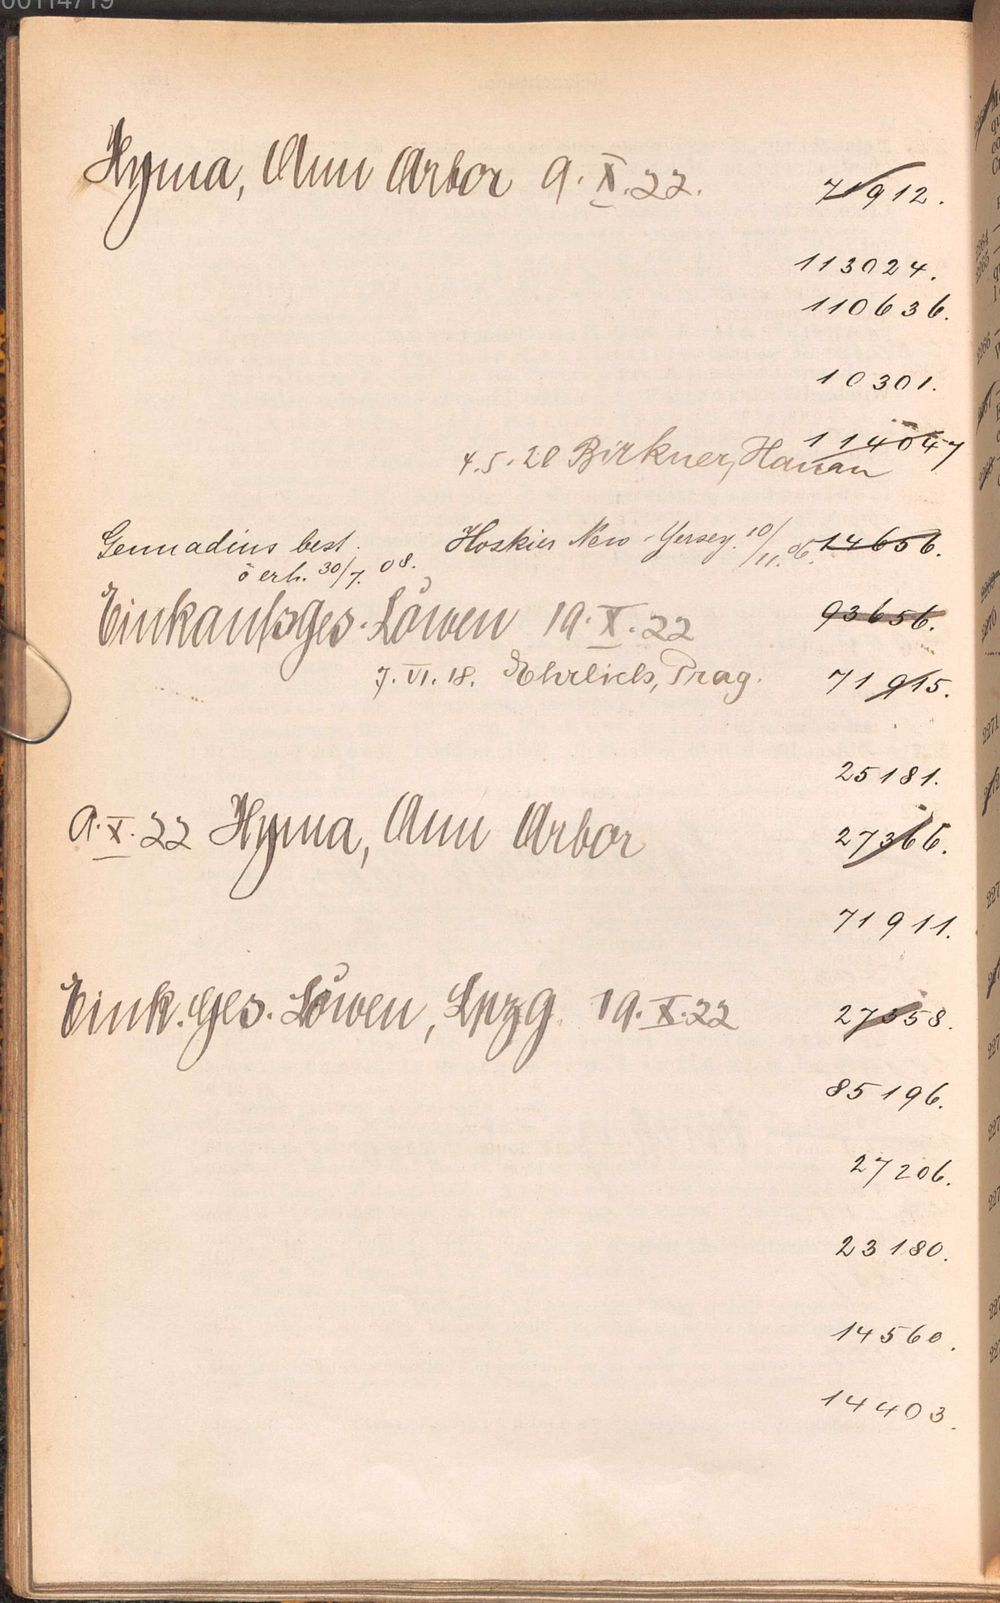 00114719
Hyma, Ann Arbor 9.X.22. 71912.
113024.
110636.
10301.
114047
4.5.20 Birkner, Hanau
Gennadius best. Hoskier New-Yersey. 10/11. 06. 14656.
ö erh. 30/7. 08.
EinkaufsGes. Löwen 19.X.22 93656.
7.VI.18. Ehrlich, Prag. 71915.
25181.
9.X.22 Hyma, Ann Arbor 27366.
71911.
Eink.Ges. Löwen, Lpzg. 19.X.22 27358.
85196.
27206.
23180.
14560.
14403.